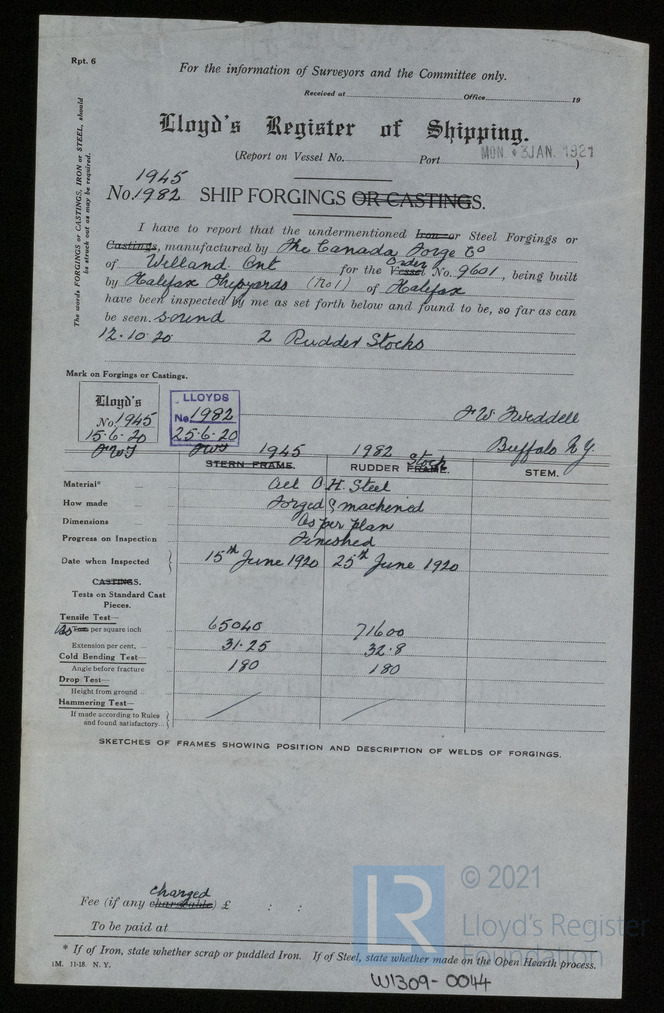 Rpt. 6
For the information of Surveyors and the Committee only.
Received at Office 19
Lloyd's Register of Shipping.
(Report on Vessel No. Port )
MON. 3 JAN. 1921
1945
No. 1982 SHIP FORGINGS OR CASTINGS.
The words FORGINGS or CASTINGS, IRON or STEEL, should
be struck out as may be required.
I have to report that the undermentioned Iron or Steel Forgings or
Castings, manufactured by The Canada Forge Co
of Welland. Ont for the Vessel Order No. 9601, being built
by Halifax Shipyards (No 1) of Halifax
have been inspected by me as set forth below and found to be, so far as can
be seen. sound
12.10.20 2 Rudder Stocks
Mark on Forgings or Castings.
Lloyd's
No. 1945
15-6-20
LLOYDS
No. 1982
25-6-20
Buffalo N.Y.
1945 1982
STERN FRAME. RUDDER FRAME. Stock STEM.
Material* O.H. Steel
How made Forged & machined
Dimensions As per plan
Progress on Inspection Finished
Date when Inspected 15th June 1920 25th June 1920
CASTINGS.
Tests on Standard Cast
Pieces.
Tensile Test—
lbs Tons per square inch 65040 71600
Extension per cent. 31.25 32.8
Cold Bending Test—
Angle before fracture 180 180
Drop Test—
Height from ground
Hammering Test—
If made according to Rules
and found satisfactory
SKETCHES OF FRAMES SHOWING POSITION AND DESCRIPTION OF WELDS OF FORGINGS.
charged
Fee (if any chargeable) £ : :
To be paid at
* If of Iron, state whether scrap or puddled Iron. If of Steel, state whether made on the Open Hearth process.
1M. 11-18. N. Y.
W1309-0044
LR
© 2021
Lloyd's Register
Foundation